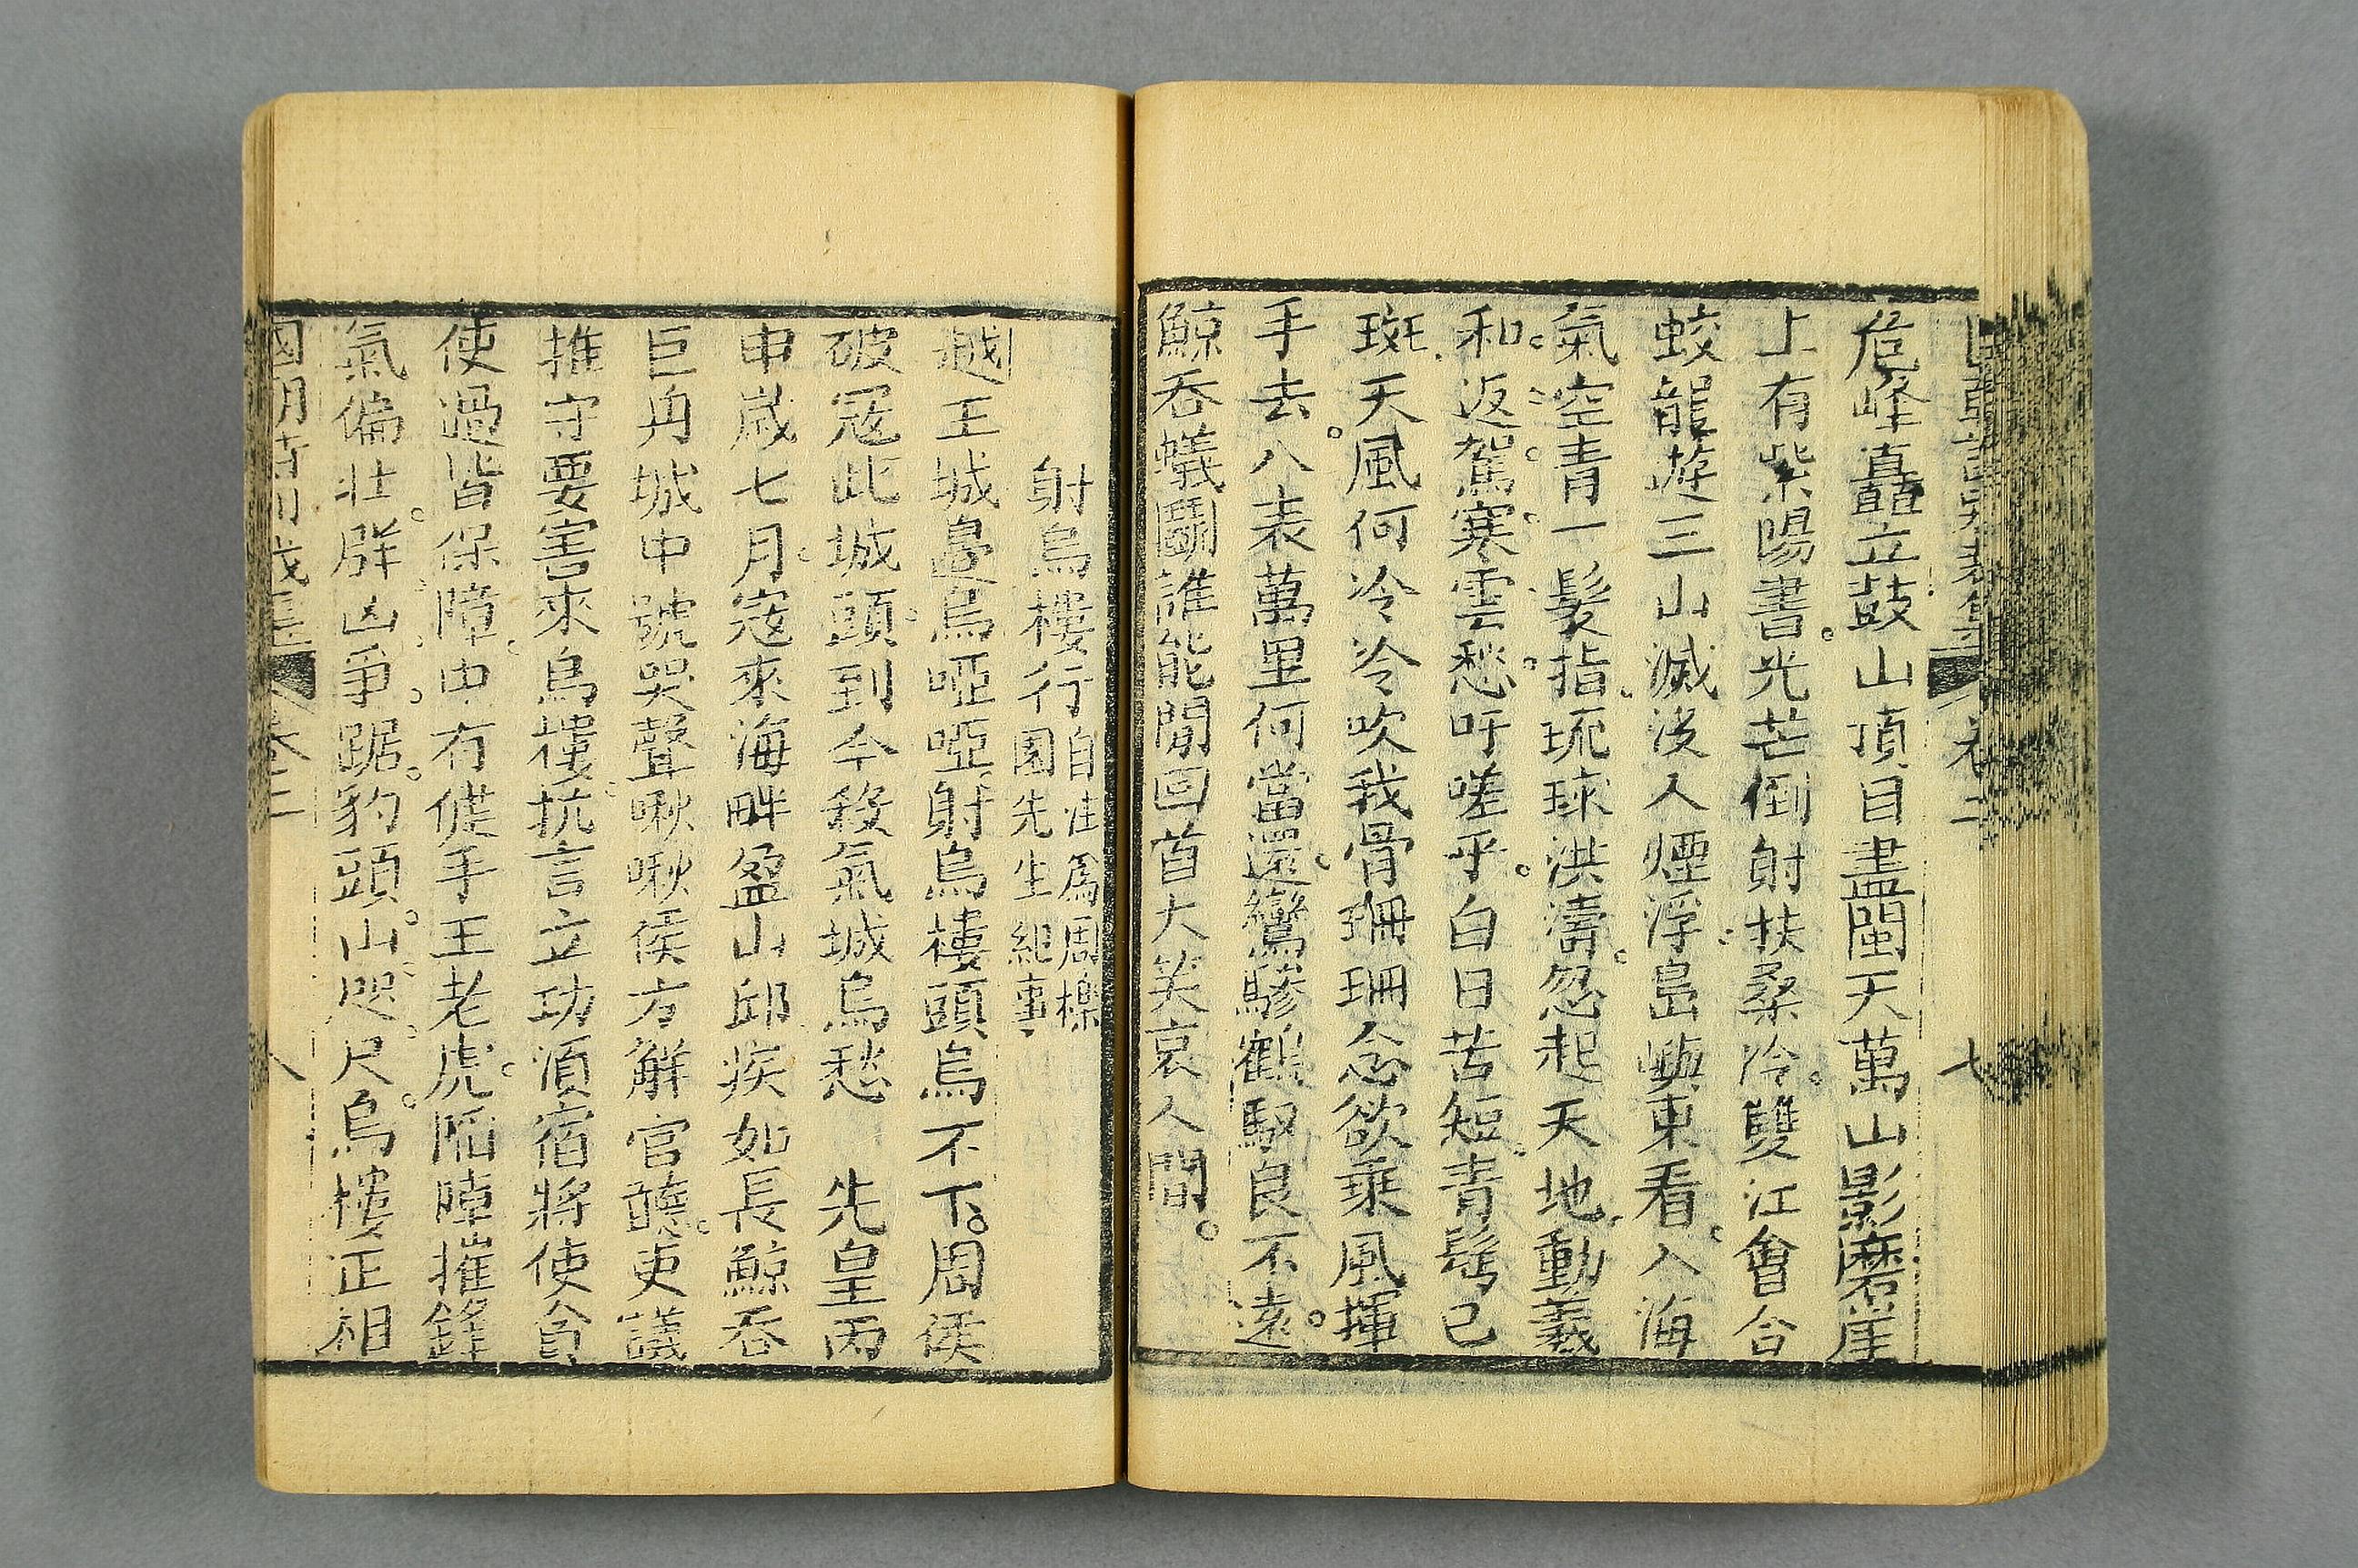 危峰矗立鼓山頂目盡閩天萬山影磨崖
上有紫陽書光芒倒射扶桑冷雙江會合
蛟龍遊三山滅沒人煙浮島嶼東看入海
氣空青一髮指琉球洪濤忽起天地動羲
和返駕寒雲愁吁嗟乎白日苦短青鬂已
斑天風何冷冷吹我骨珊珊念欲乘風揮
手去八表萬里何當還鸞驂鶴馭良不遠
鯨吞蟻鬭誰能閒回首大笑哀人間
卷二
七
射烏樓行自注爲周櫟
園先生紀事
越王城邊烏啞啞射烏樓頭烏不下周侯
破寇此城頭到今殺氣城烏愁 先皇丙
申歲七月寇來海畔盈山邱疾如長鯨吞
巨舟城中號哭聲啾啾侯方解官聽吏議
推守要害來烏樓抗言立功須宿將使貪
使過皆保障中有健手王老虎陷障摧鋒
氣偏壯群凶爭踞豹頭山咫尺烏樓正相
卷二
八